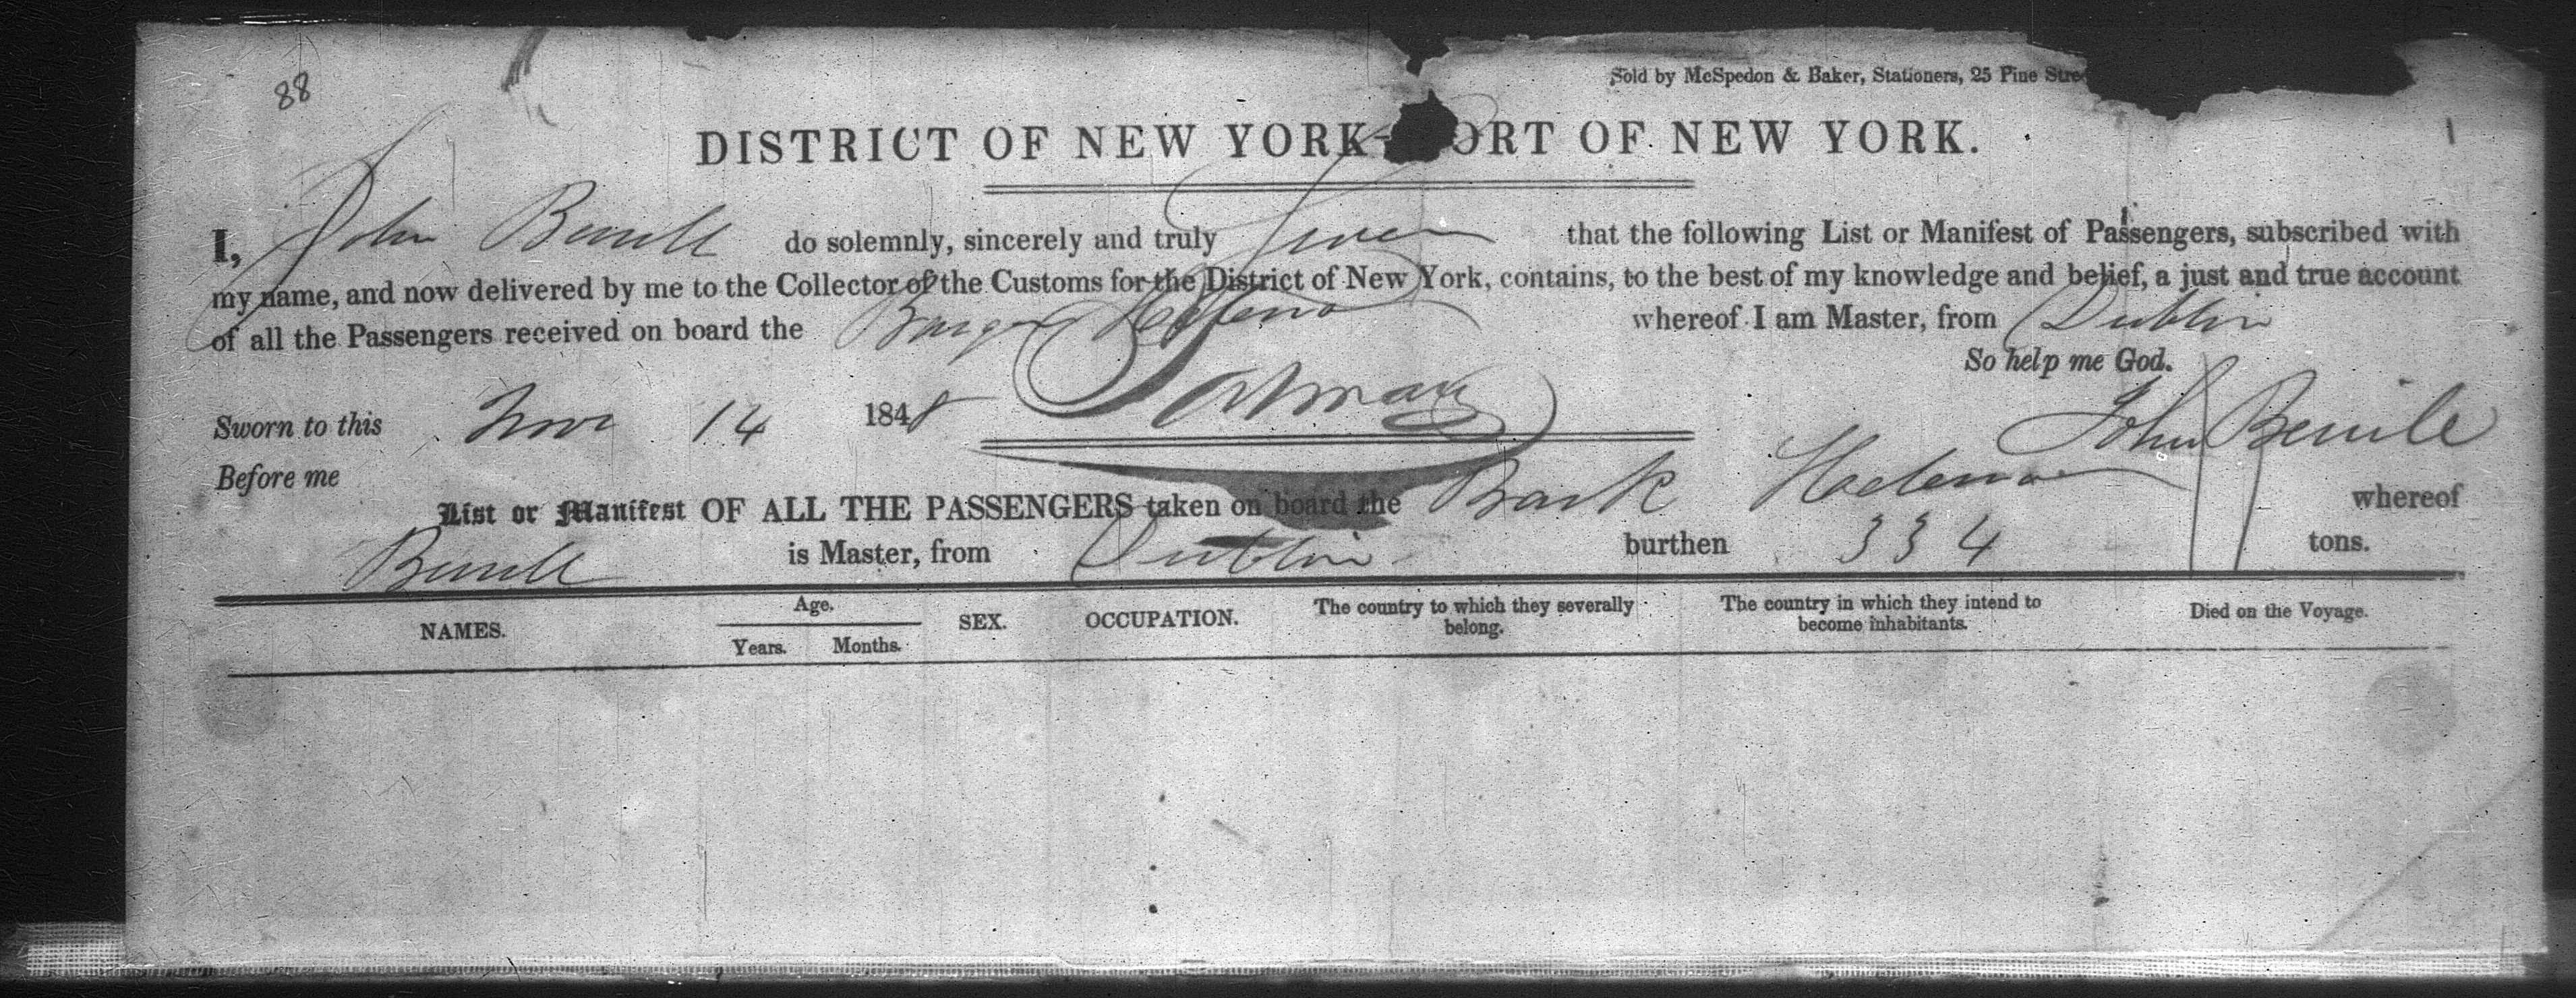 88
Sold by McSpedon & Baker, Stationers, 25 Pine
DISTRICT OF NEW YORK- ORT OF NEW YORK.
I, John do solemnly, sincerely and truly Swear that the following List or Manifest of Passengers, subscribed with
my name, and now delivered by me to the Collector of the Customs for the District of New York, contains, to the best of my knowledge and belief, a just and true account
of all the Passengers received on board the Barque Helena whereof I am Master, from Dublin
So help me God.
Sworn to this Nov 14 1848
John
Before me
List or Manifest OF ALL THE PASSENGERS taken on board the Bark Helena whereof
is Master, from Dublin burthen 334 tons.
NAMES. Age. Years. Months. SEX. OCCUPATION. The country to which they severally belong. The country in which they intend to become inhabitants. Died on the Voyage.